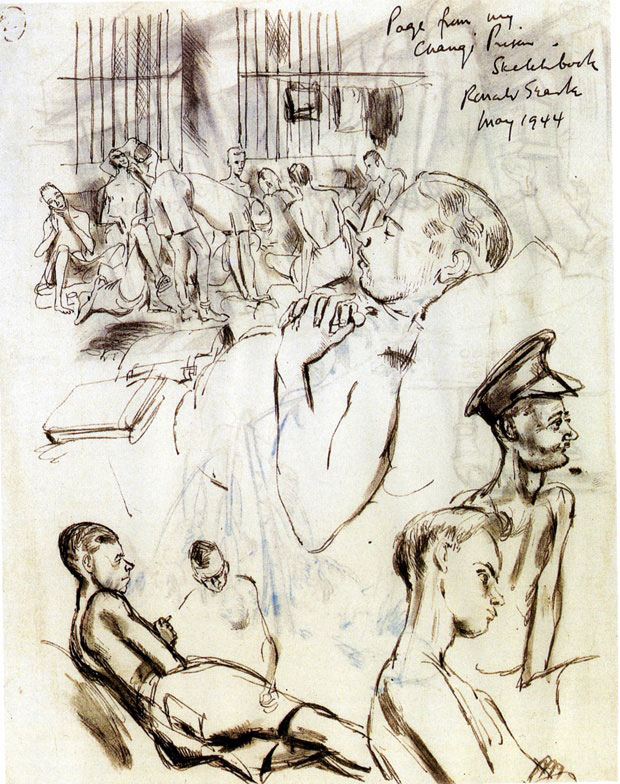 Page from my
Changi Prison
Sketchbook
Ronald Searle
May 1944